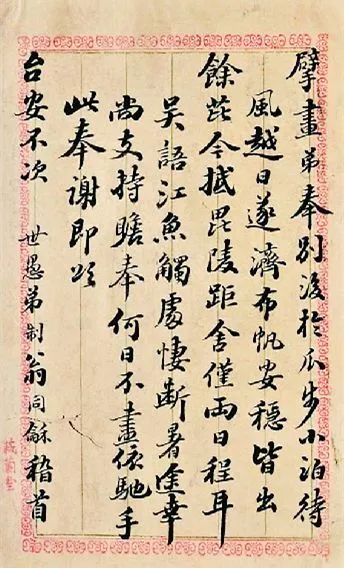 擘畫弟奉別後於瓜步小泊待
風越日遂濟布帆安穩皆出
餘芘今抵毘陵距舍僅兩日程耳
吳語江魚觸處悽斷暑途幸
尚支持瞻奉何日不盡依馳手
此奉謝即頌
台安不次 世愚弟制翁同龢稽首